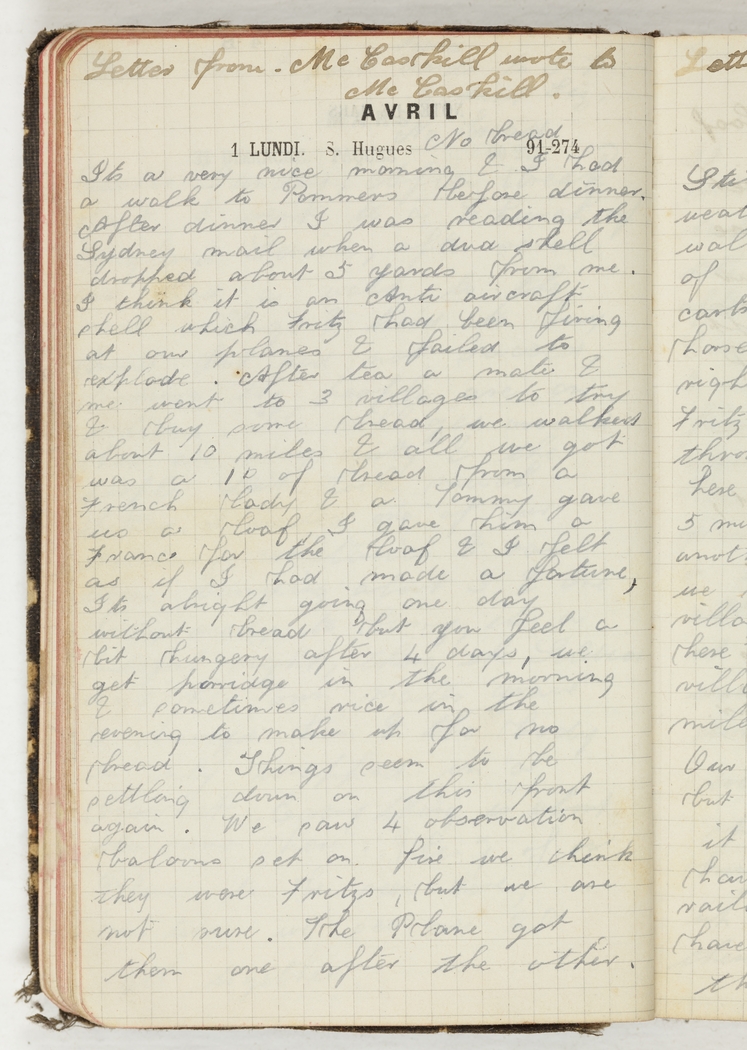 Letter from. Mc Caskill wrote to
Mc Caskill.
AVRIL
1 LUNDI. S. Hugues No bread 91-274
Its a very nice morning & I had
a walk to Pommers before dinner.
After dinner I was reading the
Sydney mail when a dud shell
dropped about 5 yards from me.
I think it is an Anti aircraft
shell which Fritz had been firing
at our planes & failed to
explode. After tea a mate &
me went to 3 villages to try
& buy some bread, we walked
about 10 miles & all we got
was a 1D of bread from a
French lady & a Tommy gave
us a loaf, I gave him a
Franc for the loaf & I felt
as if I had made a fortune,
Its alright going one day
without bread but you feel a
bit hungery after 4 days, we
get porridge in the morning
& sometimes rice in the
evening to make up for no
bread. Things seem to be
settling down on this front
again. We saw 4 observation
baloons set on fire we think
they were Fritzs, but we are
not sure. The Plane got
them one after the other.
Lett
weat
wal
of
carts
horse
righ
Fritz
thro
here
5 mi
anot
we
villa
here
vill
mile
Our
but
it
hav
rail
have
th